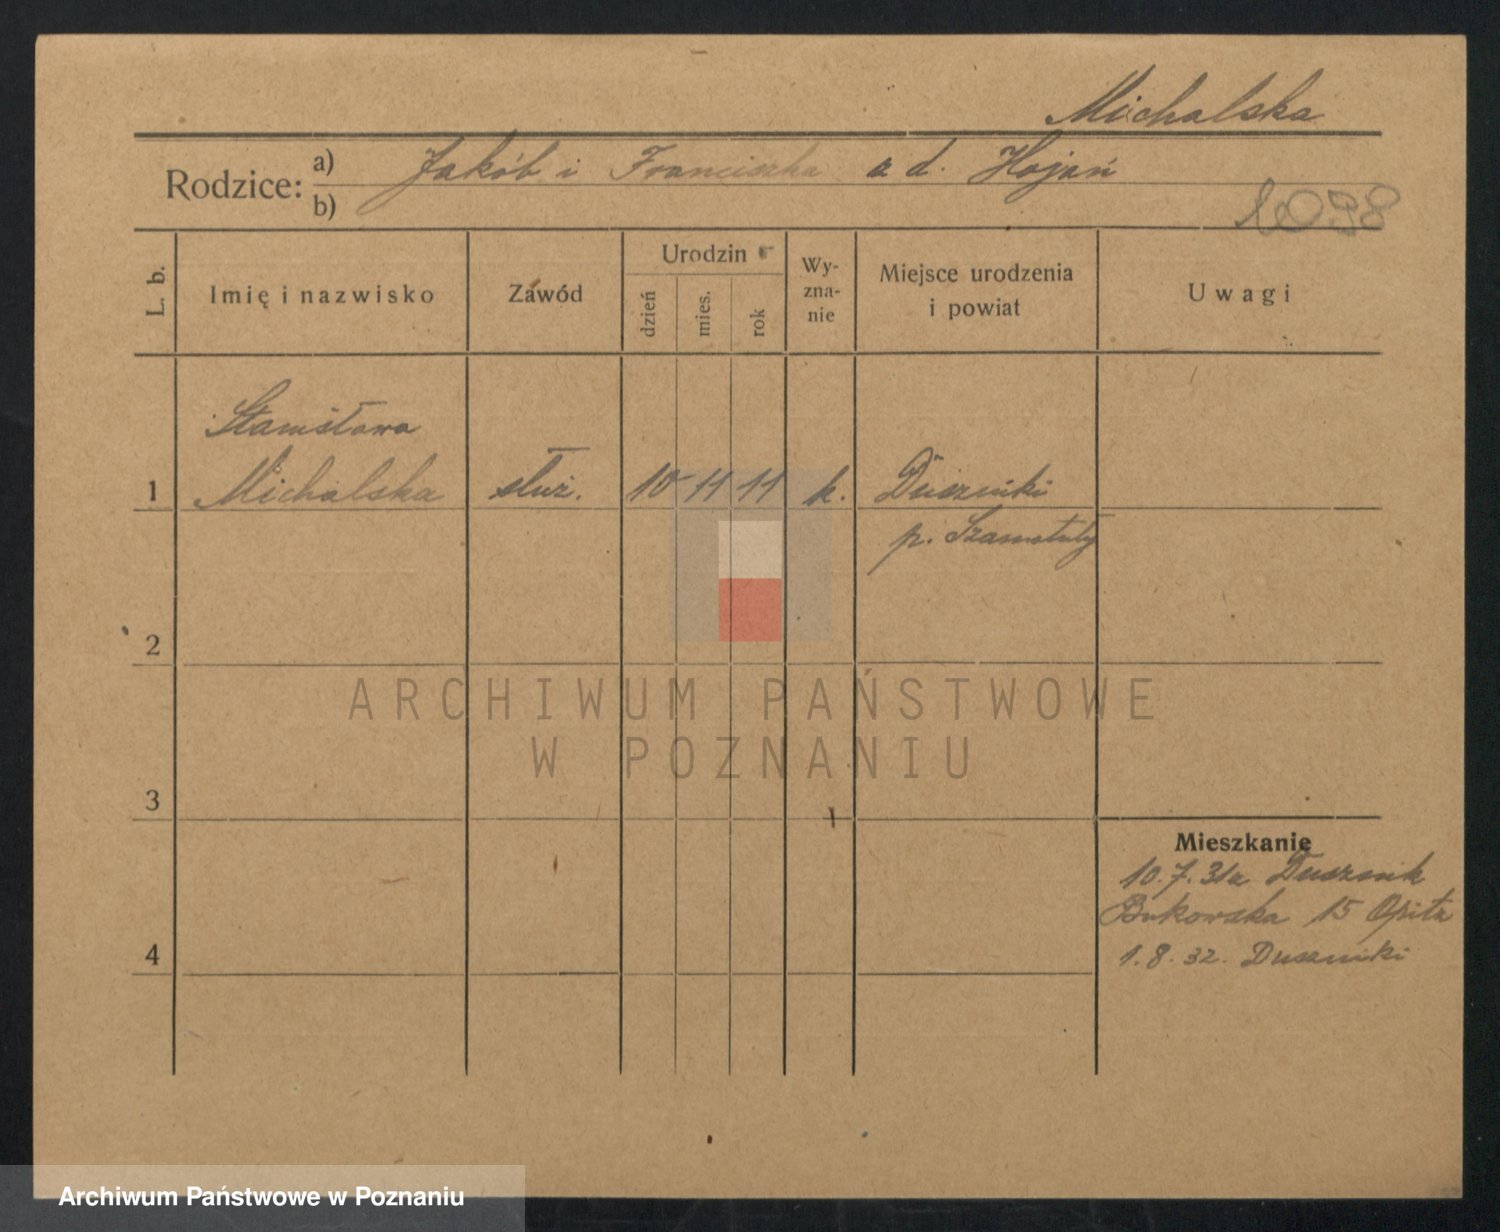 Michalska
Rodzice: a) Jakób i Franciszka z d. Hojan
b)
1098
L. b.
Imię i nazwisko
Zawód
Urodzin
dzień
mies.
rok
Wy-
zna-
nie
Miejsce urodzenia
i powiat
Uwagi
Stanisława
1 Michalska służ. 10 11 11 k. Duszniki
p. Szamotuły
2
ARCHIWUM PAŃSTWOWE
W POZNANIU
3
Mieszkanie
10. 7. 31 z Dusznik
Bukowska 15 Opitz
4
1. 8. 32. Duszniki
Archiwum Państwowe w Poznaniu